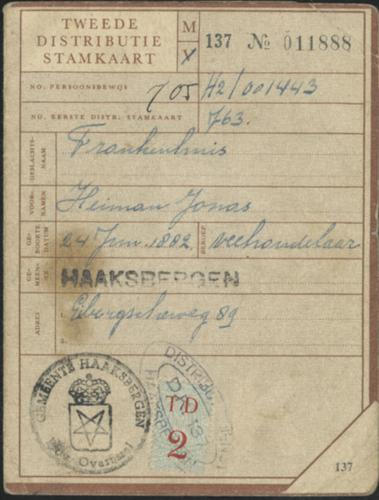 TWEEDE
DISTRIBUTIE
STAMKAART
M
X
137 № 011888
NO. PERSOONSBEWIJS
705 H2/001443
NO. EERSTE DISTR. STAMKAART
763.
GESLACHTS-
NAAM
Frankenhuis
VOOR-
NAMEN
Heiman Jonas
GE-
BOORTE
DATUM
24 Jun. 1882
BEROEP
veehandelaar
GE-
MEEN-
TE
HAAKSBERGEN
ADRES
1.
Eibergscheweg 89
2.
GEMEENTE HAAKSBERGEN
Overijssel
DISTRIBU
TD
2
137